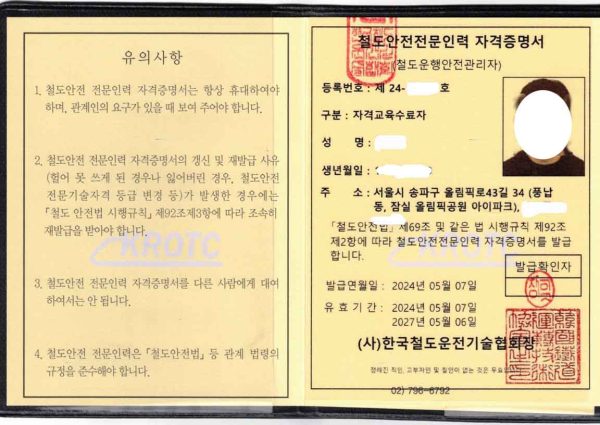 유의사항
1. 철도안전 전문인력 자격증명서는 항상 휴대하여야
하며, 관계인의 요구가 있을 때 보여 주어야 합니다.
2. 철도안전 전문인력 자격증명서의 갱신 및 재발급 사유
(헐어 못 쓰게 된 경우나 잃어버린 경우, 철도안전
전문기술자격 등급 변경 등)가 발생한 경우에는
「철도 안전법 시행규칙」제92조제3항에 따라 조속히
재발급을 받아야 합니다.
3. 철도안전 전문인력 자격증명서를 다른 사람에게 대여
하여서는 안 됩니다.
4. 철도안전 전문인력은「철도안전법」등 관계 법령의
규정을 준수해야 합니다.
KROTC
철도안전전문인력 자격증명서
(철도운행안전관리자)
등록번호 : 제 24- 호
구분 : 자격교육수료자
성 명 :
생년월일 :
주 소 : 서울시 송파구 올림픽로43길 34 (풍납
동, 잠실 올림픽공원 아이파크),
「철도안전법」제69조 및 같은 법 시행규칙 제92조
제2항에 따라 철도안전전문인력 자격증명서를 발급
합니다.
KROTC
발급확인자
발급연월일 : 2024년 05월 07일
유 효 기 간 : 2024년 05월 07일
2027년 05월 06일
(사)한국철도운전기술협회장
정해진 직인, 고부자인 및 철인이 없는 것은 무효임
02) 796-6792